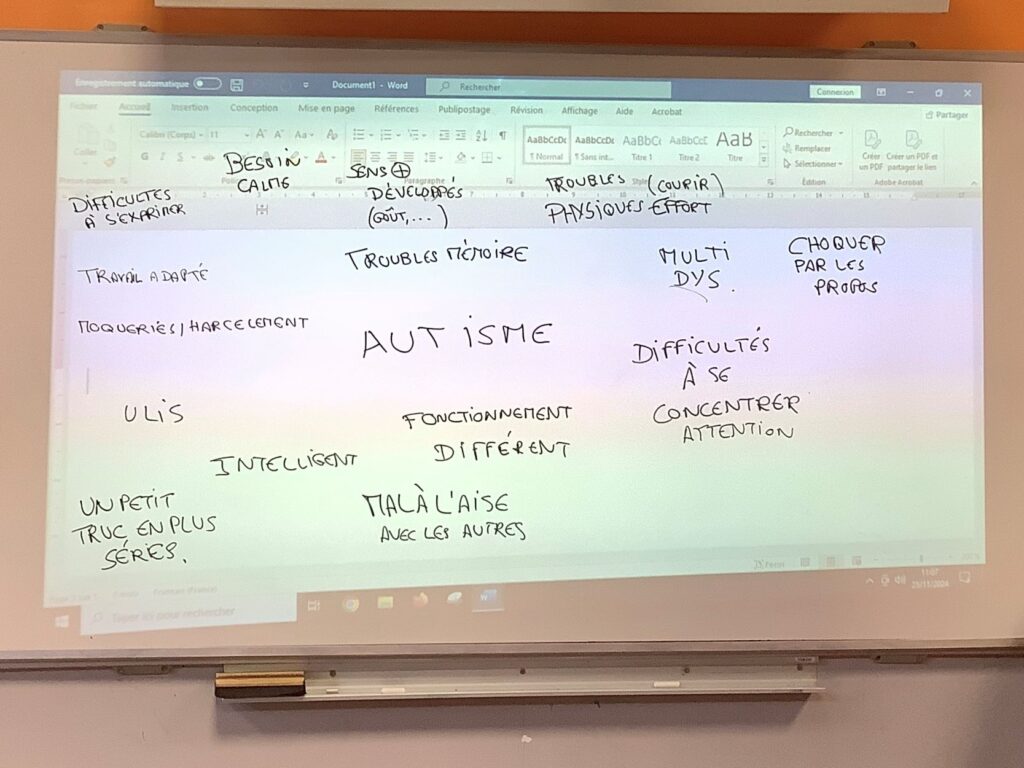 Enregistrement automatique
Document1 - Word
Rechercher
Connexion
Fichier Accueil Insertion Conception Mise en page Références Publipostage Révision Affichage Aide Acrobat
Partager
Coller
Calibri (Corps) 11
G I S
AaBbCcDc AaBbCcDc AaBbCc AaBbCcC AaB
¶ Normal ¶ Sans int... Titre 1 Titre 2 Titre
Rechercher
Remplacer
Sélectionner
Créer un PDF
Créer un PDF et partager le lien
Paragraphe
Édition
Adobe Acrobat
DIFFICULTÉS
À S'EXPRIMER
BESOIN
CALME
SENS +
DÉVELOPPÉS
(GOÛT,...)
TROUBLES (COURIR)
PHYSIQUES EFFORT
TRAVAIL ADAPTÉ
TROUBLES MÉMOIRE
MULTI
DYS.
CHOQUER
PAR LES
PROPOS
MOQUERIES/HARCELEMENT
AUTISME
DIFFICULTÉS
À SE
CONCENTRER
ATTENTION
ULIS
FONCTIONNEMENT
DIFFÉRENT
INTELLIGENT
UN PETIT
TRUC EN PLUS
SÉRIES.
MAL À L'AISE
AVEC LES AUTRES
Français (France)
Taper ici pour rechercher
11:07
25/11/2024